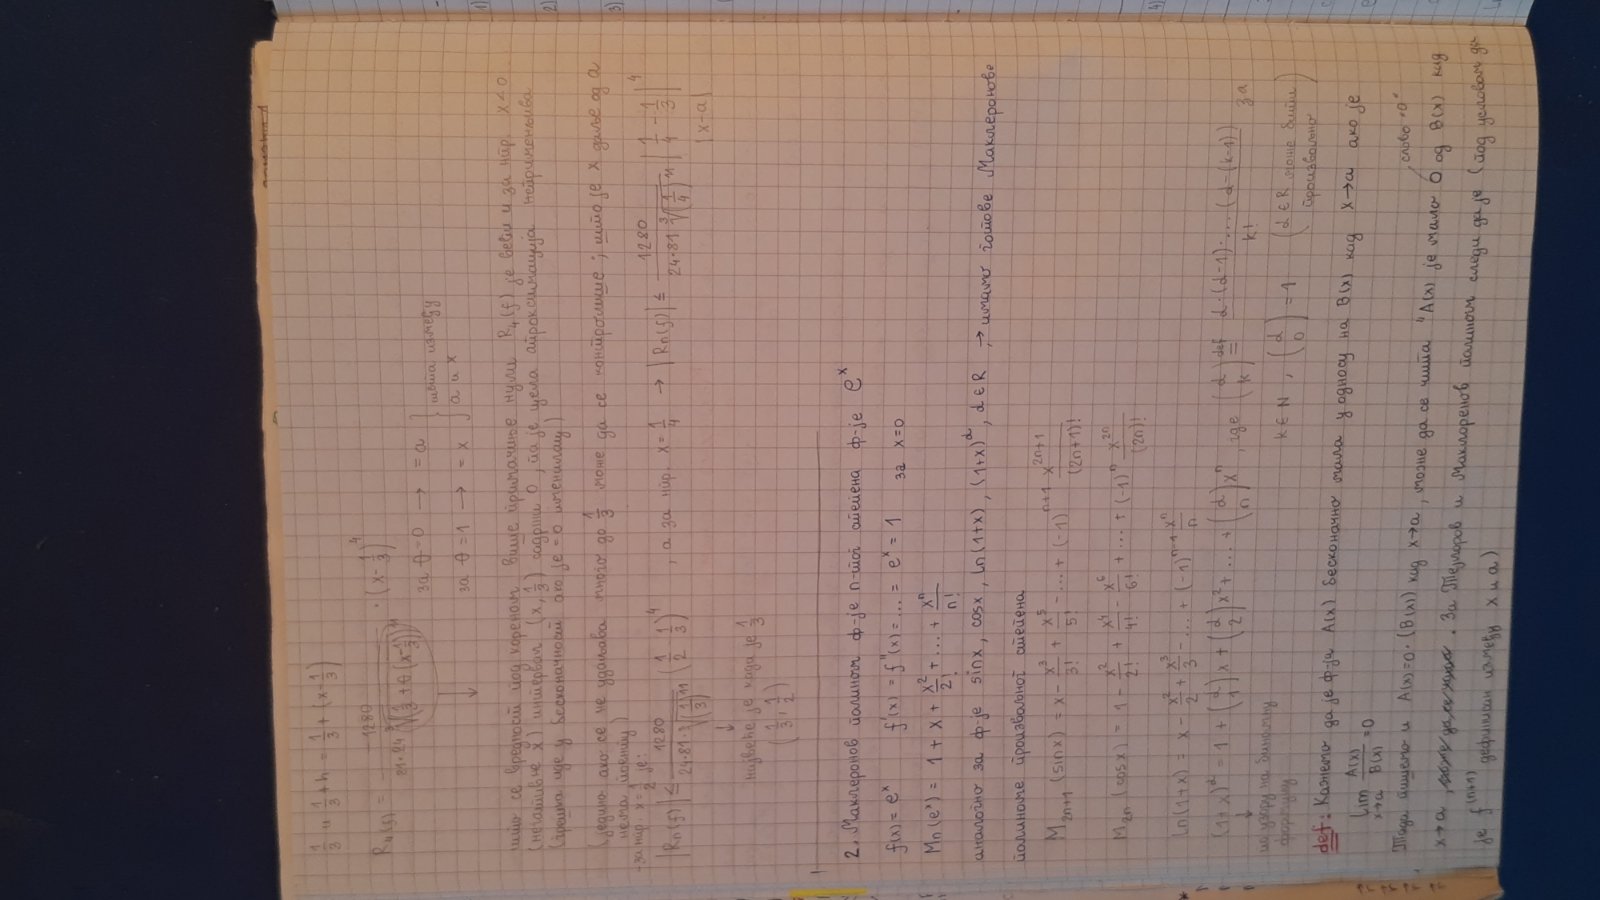 1/3 и 1/3 + h = 1/3 + (x - 1/3)
R₄(f) = -1280 / (81·24 ³√((1/3 + θ(x-1/3))¹¹)) · (x - 1/3)⁴
за θ=0 → = a
за θ=1 → = x } између a и x
што се вредност под кореном више примакне нули R₄(f) је већи и за нпр. x<0
(негативне x) интервал (x, 1/3) садржи 0, па је цела апроксимација неприменљива
(грешка иде у бесконачност ако је =0 именилац)
(једино ако се не удаљава много до 1/3 може да се контролише; што је x даље од a
нема
-за нпр. x = 1/2 је:
|Rn(f)| ≤ 1280 / (24·81·³√((1/3)¹¹)) (1/2 - 1/3)⁴, а за нпр. x = 1/4 → |Rn(f)| ≤ 1280 / (24·81 ³√((1/4)¹¹)) |1/4 - 1/3|⁴
|x-a|
највеће је када је 1/3
(1/3, 1/2)
2. Маклеронов полином ф-је n-тог степена ф-је eˣ
f(x) = eˣ f'(x) = f''(x) = ... = eˣ = 1 за x=0
Mn(eˣ) = 1 + x + x²/2! + ... + xⁿ/n!
аналогно за ф-је sinx, cosx, ln(1+x), (1+x)^α, α∈R → имамо готове Маклеронове
полиноме произвољног степена
M₂ₙ₊₁(sinx) = x - x³/3! + x⁵/5! - ... + (-1)ⁿ⁺¹ x²ⁿ⁺¹/(2n+1)!
M₂ₙ(cosx) = 1 - x²/2! + x⁴/4! - x⁶/6! + ... + (-1)ⁿ x²ⁿ/(2n)!
ln(1+x) = x - x²/2 + x³/3 - ... + (-1)ⁿ⁻¹ xⁿ/n
(1+x)^α = 1 + (α 1)x + (α 2)x² + ... + (α n)xⁿ, где (α k) def= α·(α-1)·...·(α-(k-1)) / k! за
k∈N, (α 0) = 1 (α∈R може бити произвољно)
формулу
def: Кажемо да је ф-ја A(x) бесконачно мала у односу на B(x) кад x→a ако је
lim x→a A(x)/B(x) = 0
Тада пишемо и A(x)=o·(B(x)) кад x→a, може да се чита "A(x) је мало o од B(x) кад
слово "о"
x→a". За Тејлоров и Маклоренов полином следи да је (под условом да
је f⁽ⁿ⁺¹⁾ дефинисан између x и a)
1)
2)
3)
4)